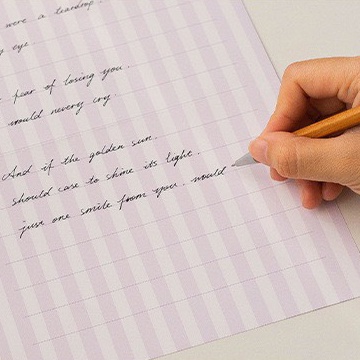 were a teardrop
y eye
fear of losing you.
would nevery cry.
And if the golden sun.
should case to shine its light.
just one smile from you. would